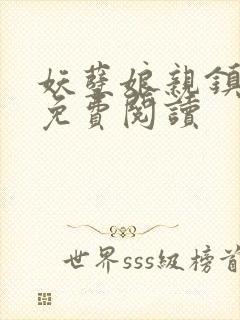 妖孽娘親鎮
免費閱讀
世界sss級榜首